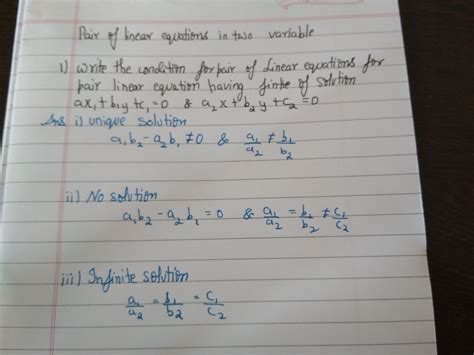 Pair of linear equations in two variable
1) Write the condition for pair of Linear equations for
pair linear equation having finite of solution
ax, + b₁y + c₁ = 0 & a₂x + b₂y + c₂ = 0
Ans i) unique solution
a₁b₂ - a₂b₁ ≠ 0 & a₁/a₂ ≠ b₁/b₂
ii) No solution
a₁b₂ - a₂b₁ = 0 & a₁/a₂ = b₁/b₂ ≠ c₁/c₂
iii) Infinite solution
a₁/a₂ = b₁/b₂ = c₁/c₂